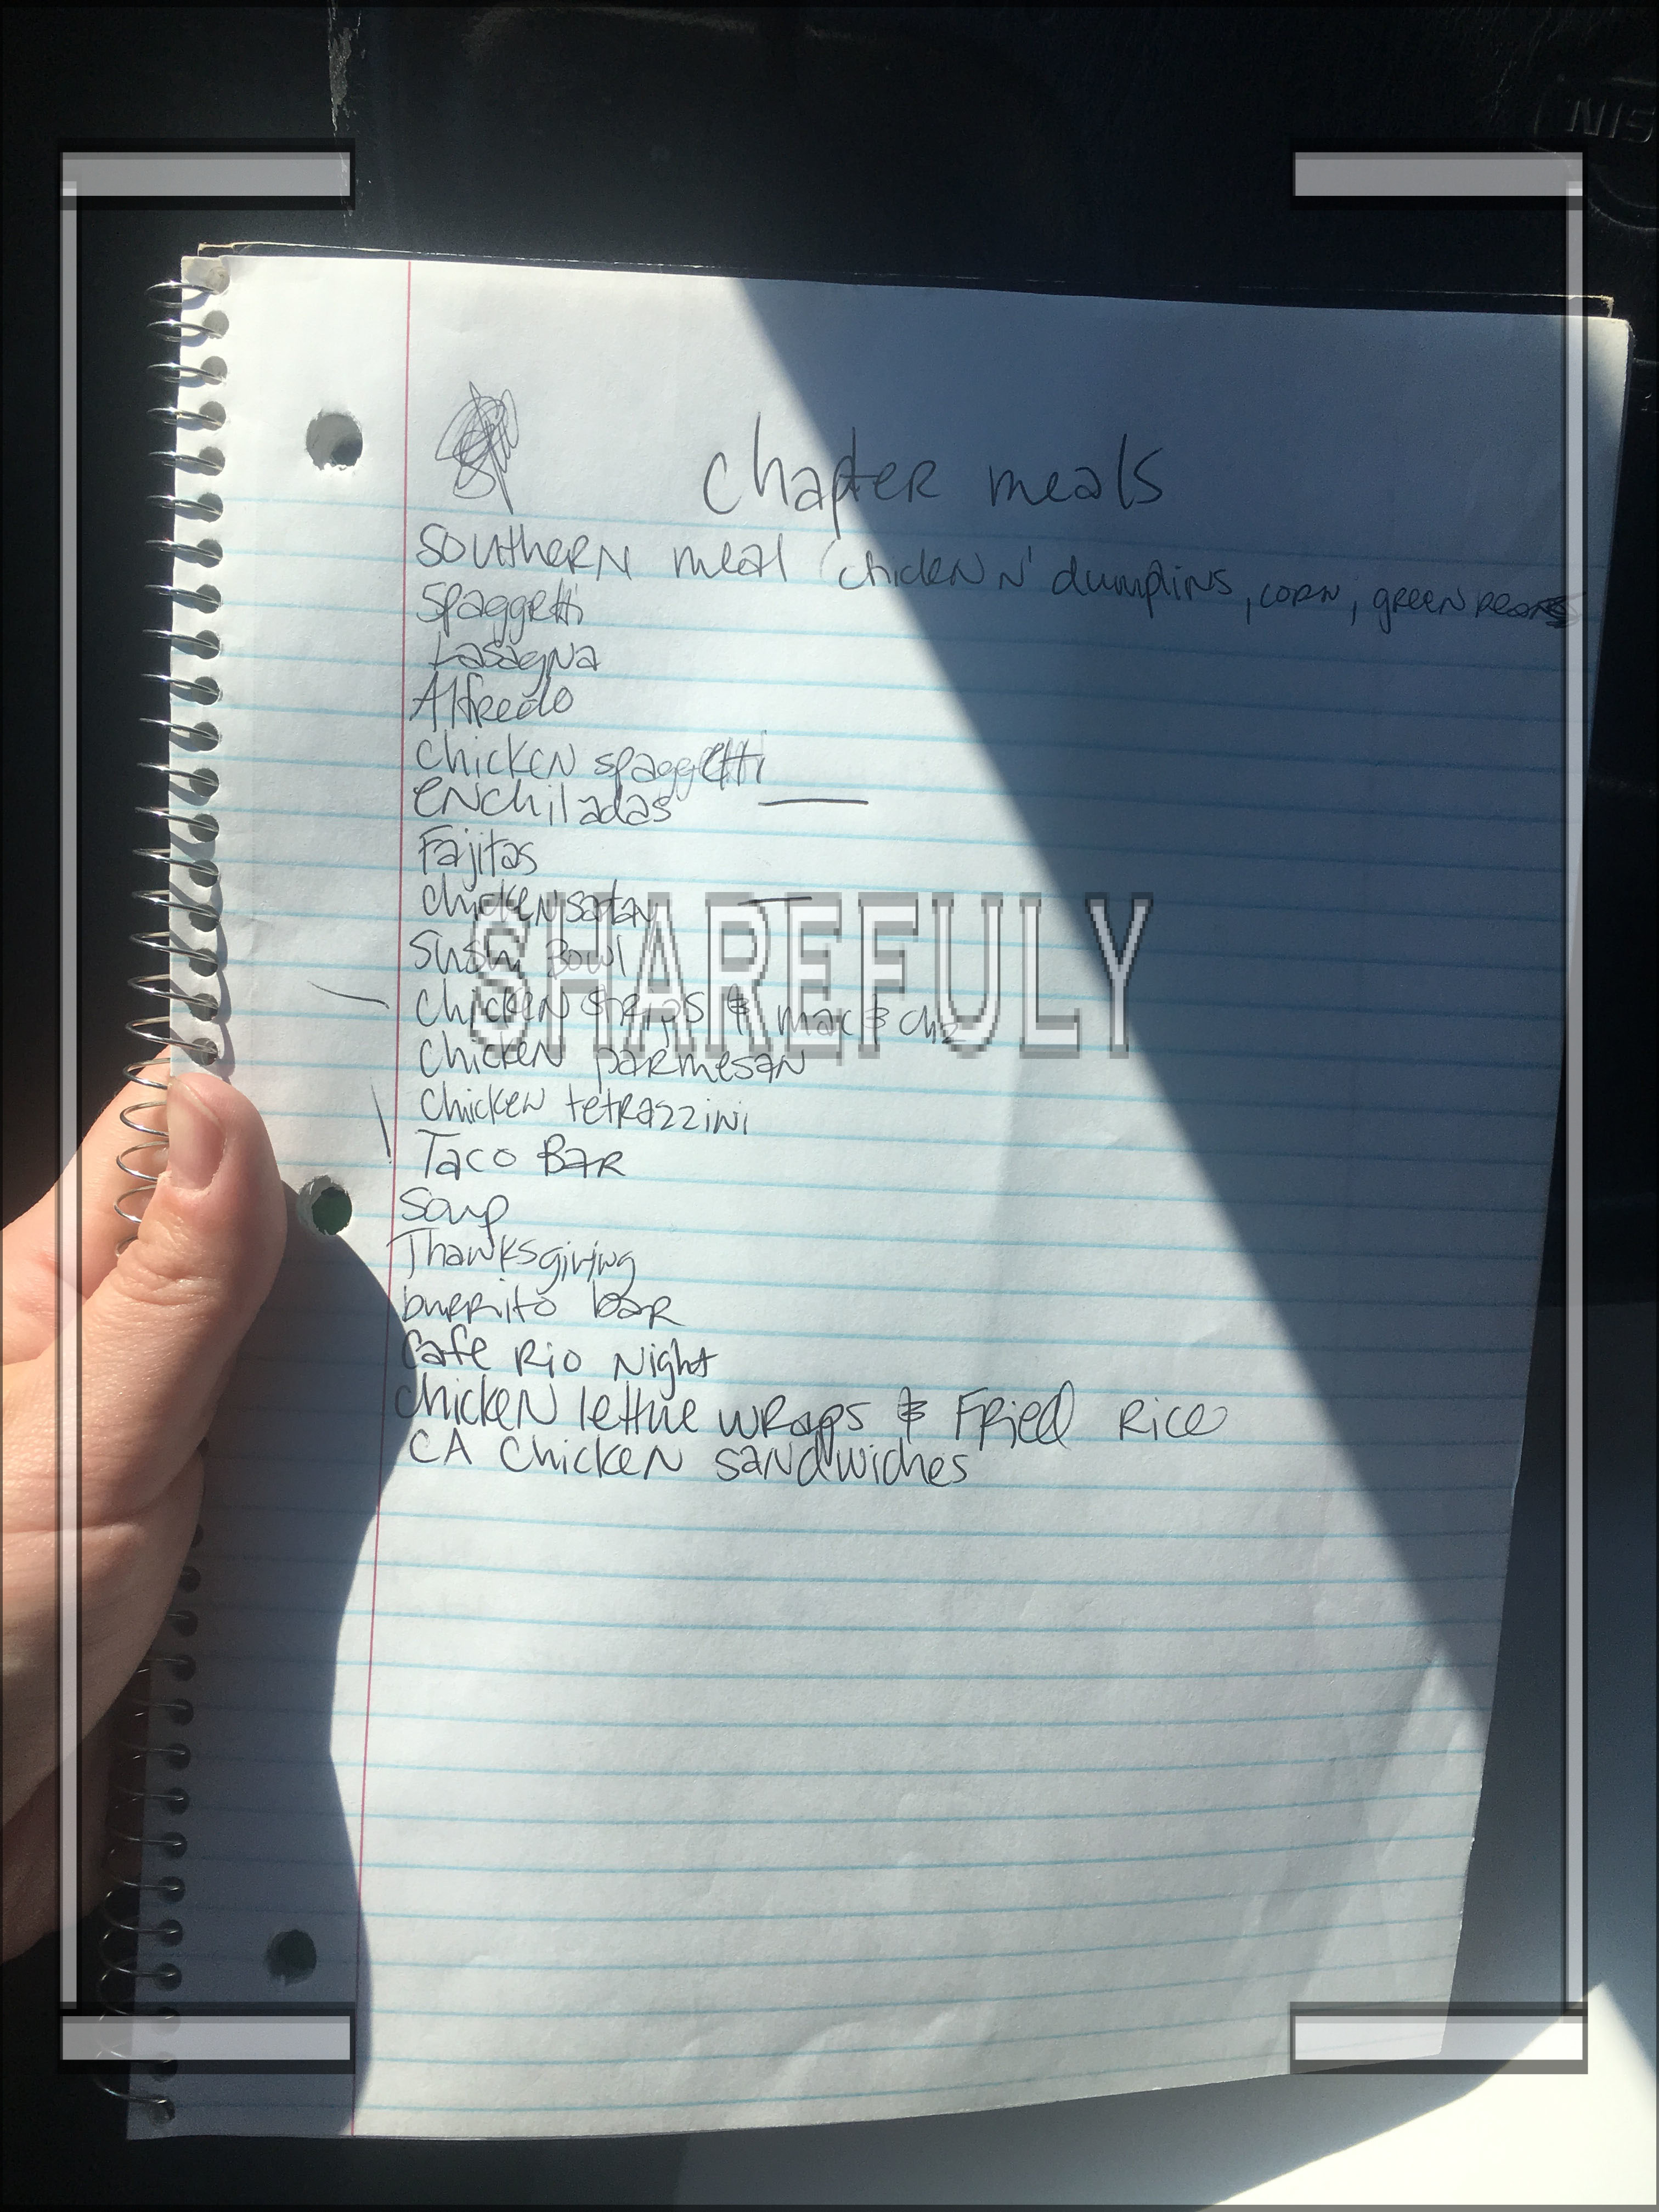 NIS
chapter meals
Southern meal (chicken n' dumplins, corn, green
Spaggetti
Lasagna
Alfredo
Chicken spaggetti
enchiladas
Fajitas
Chicken
Sushi Bowl
Chicken strips & mac & chz
Chicken parmesan
Chicken tetrazzini
Taco Bar
Soup
Thanksgiving
burrito bar
Cafe Rio Night
Chicken lettue wraps & Fried Rice
CA Chicken sandwiches
SHAREFULY